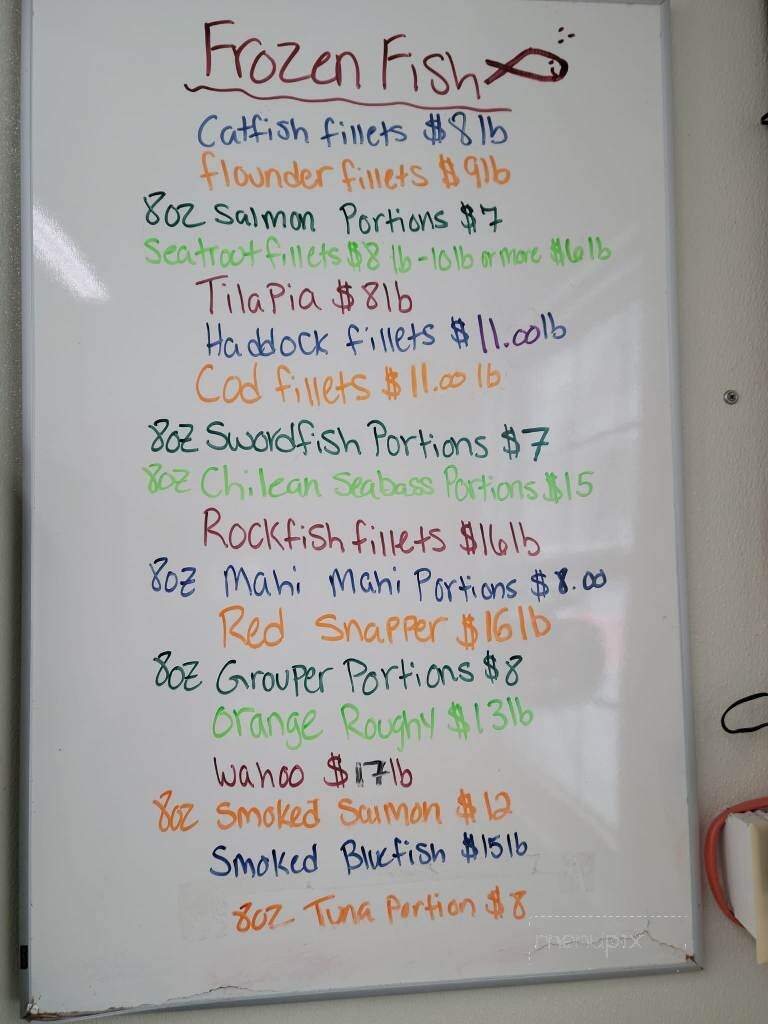 Frozen Fish
Catfish fillets $8 lb
flounder fillets $9lb
8oz Salmon Portions $7
Seatrout fillets $8 lb -10lb or more $6 lb
Tilapia $8lb
Haddock fillets $11.00lb
Cod fillets $11.00 lb
8oz Swordfish Portions $7
8oz Chilean Seabass Portions $15
Rockfish fillets $16lb
8oz Mahi Mahi Portions $8.00
Red Snapper $16 lb
8oz Grouper Portions $8
Orange Roughy $13lb
Wahoo $17lb
8oz Smoked Salmon $12
Smoked Bluefish $15lb
8oz Tuna Portion $8
menupix